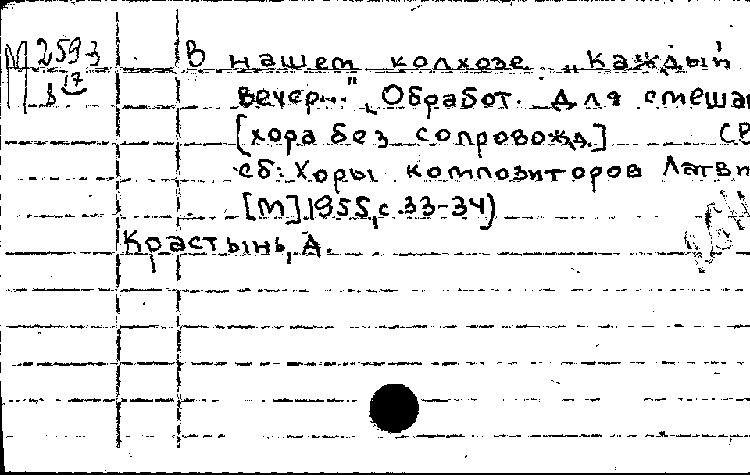 М 2593 В нашем колхозе. „Каждый
в 17 вечер..." Обработ. для смешан
[хора без сопровожд.] (В
сб: Хоры композиторов Латви
[М], 1955, с. 33-34)
Крастынь, А.